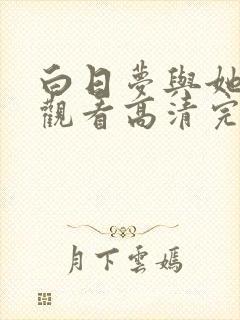 白日夢與她
觀看高清完
月下雲嫣